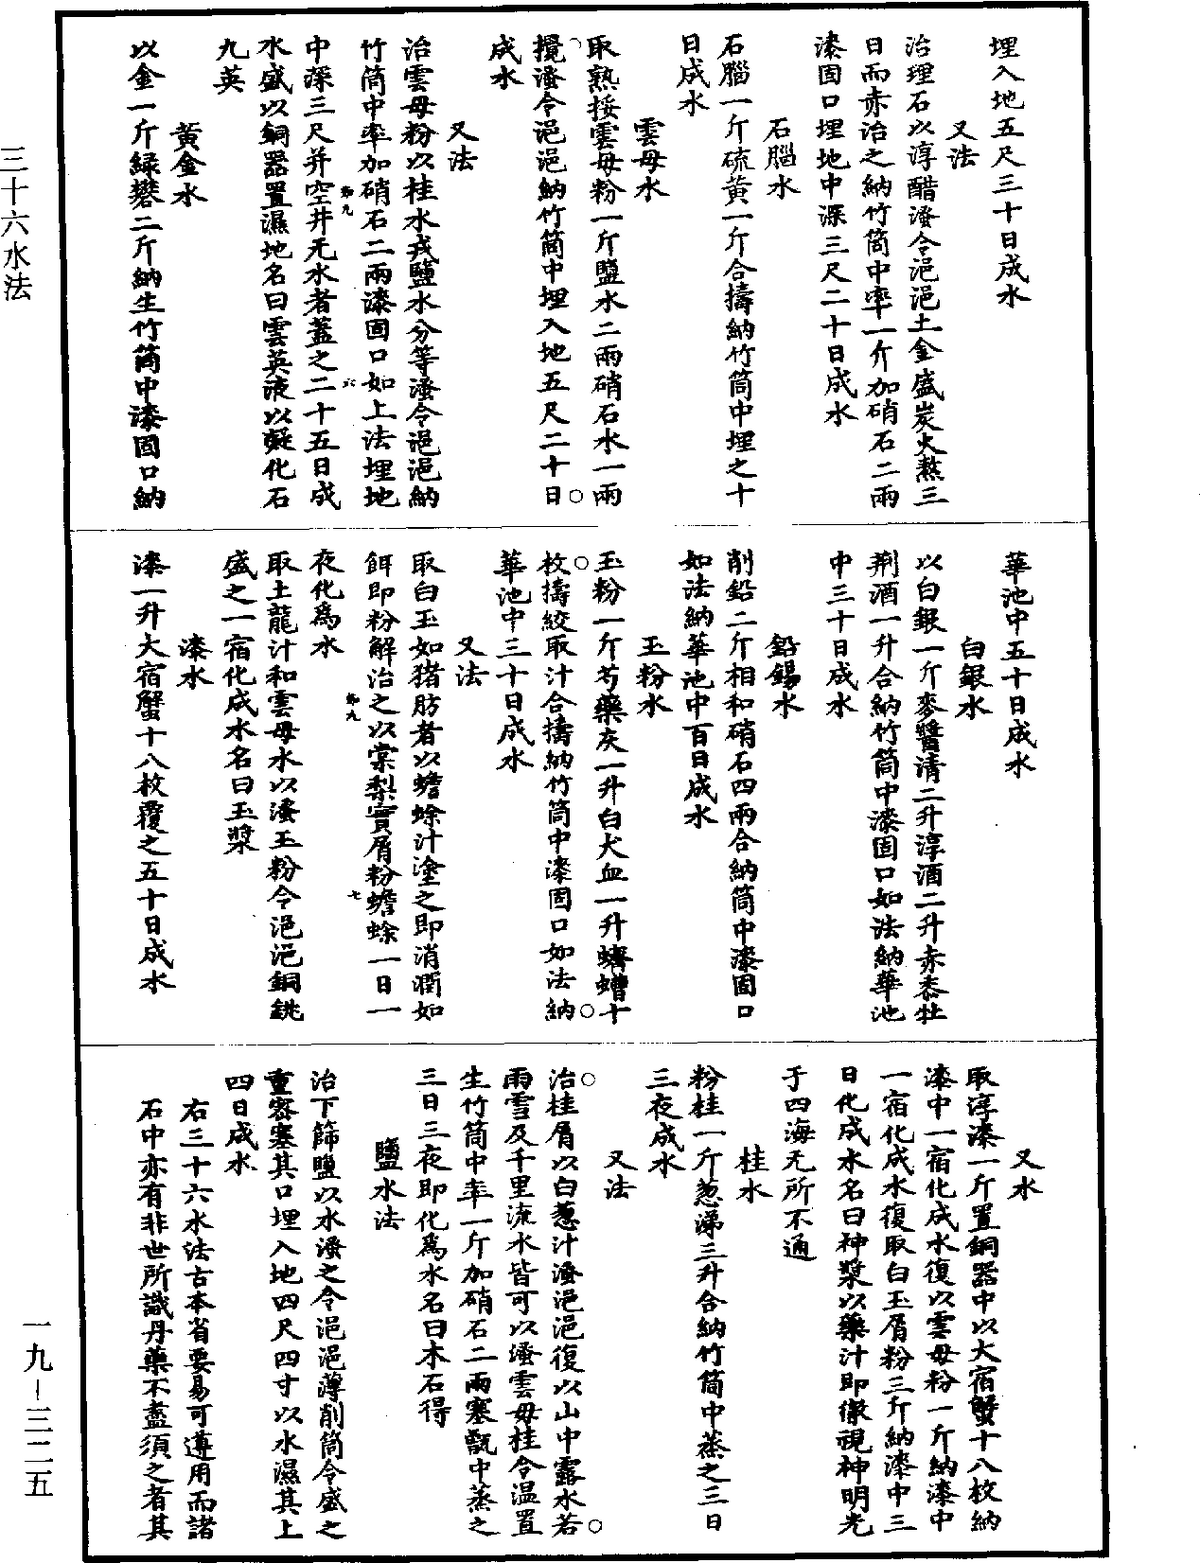 埋入地五尺三十日成水
又法
治理石以淳醋溲令浥浥土金盛炭火熬三
日而赤治之納竹筒中率一斤加硝石二兩
漆固口埋地中深三尺二十日成水
石腦水
石腦一斤硫黃一斤合擣納竹筒中埋之十
日成水
雲母水
取熟挼雲母粉一斤鹽水二兩硝石水一兩
攪溲令浥浥納竹筒中埋入地五尺二十日
成水
又法
治雲母粉以桂水戎鹽水分等溲令浥浥納
竹筒中率加硝石二兩漆固口如上法埋地
中深三尺并空井无水者蓋之二十五日成
水盛以銅器置濕地名曰雲英液以凝化石
九英
黃金水
以金一斤緑礬二斤納生竹筒中漆固口納
華池中五十日成水
白銀水
以白銀一斤麥醬清二升淳酒二升赤黍牡
荊酒一升合納竹筒中漆固口如法納華池
中三十日成水
鉛錫水
削鉛二斤相和硝石四兩合納筒中漆固口
如法納華池中百日成水
玉粉水
玉粉一斤芍藥灰一升白犬血一升蠐螬十
枚擣絞取汁合擣納竹筒中漆固口如法納
華池中三十日成水
又法
取白玉如猪肪者以蟾蜍汁塗之即消潤如
餌即粉解治之以棠梨實屑粉蟾蜍一日一
夜化爲水
取土龍汁和雲母水以溲玉粉令浥浥銅銚
盛之一宿化成水名曰玉漿
漆水
漆一升大宿蟹十八枚覆之五十日成水
又水
取淳漆一斤置銅器中以大宿蟹十八枚納
漆中一宿化成水復以雲母粉一斤納漆中
一宿化成水復取白玉屑粉三斤納漆中三
日化成水名曰神漿以藥汁即徹視神明光
于四海无所不通
桂水
粉桂一斤葱涕三升合納竹筒中蒸之三日
三夜成水
又法
治桂屑以白葱汁溲浥浥復以山中露水若
雨雪及千里流水皆可以溲雲母桂令温置
生竹筒中率一斤加硝石二兩塞甑中蒸之
三日三夜即化爲水名曰木石得
鹽水法
治下篩鹽以水溲之令浥浥薄削筒令盛之
重密塞其口埋入地四尺四寸以水濕其上
四日成水
右三十六水法古本省要易可遵用而諸
石中亦有非世所識丹藥不盡須之者其
三十六水法
一九–三二五